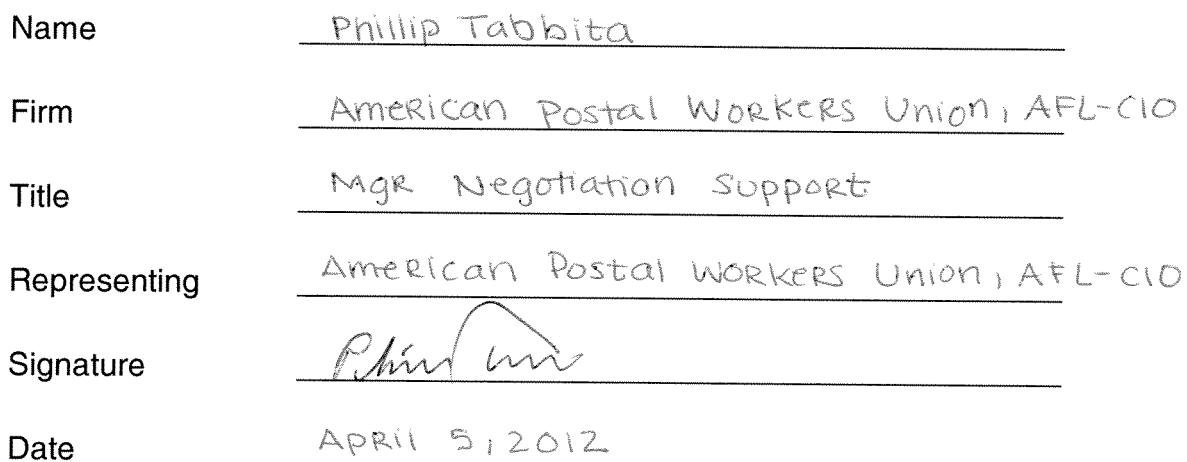 Name Phillip Tabbita
Firm American Postal Workers Union, AFL-CIO
Title Mgr Negotiation Support
Representing American Postal Workers Union, AFL-CIO
Signature
Date April 5, 2012